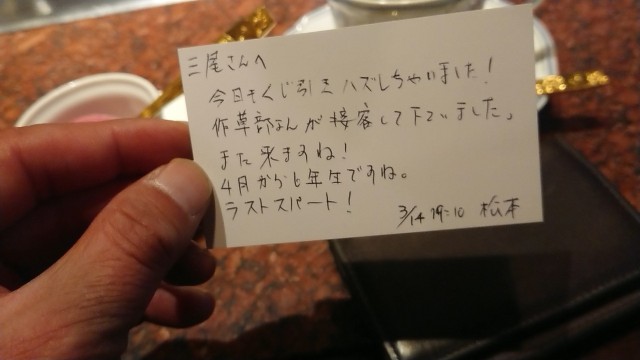 三尾さんへ
今日もくじ引きハズしちゃいました!
作草部さんが接客して下さいました。
また来ますね!
4月から七年生ですね。
ラストスパート!
3/14 19:10 松本